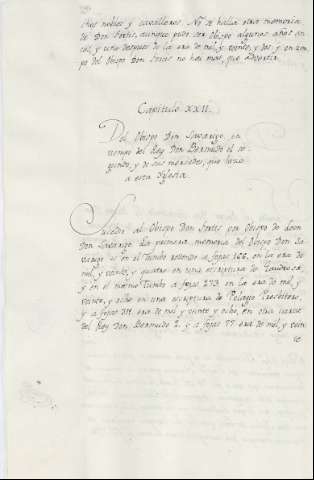 chos nobles y cavalleros. No se halla otra memoria
de Don Fortis, aunque pudo ser Obispo algunos años an
tes, y uno despues de la era de mil, y veinte, y dos y en tiem
po del Obispo Don Fortis no hai mas, que advertir.
Capitulo XXII.
Del Obispo Don Savarigo, en
tiempo del Rey Don Bermudo el se
gundo, y de sus mercedes, que hizo
a esta Yglesia.
Sucedio al Obispo Don Fortis por Obispo de Leon
Don Savarigo. La primera memoria del Obispo Don Sa
varigo es en el Tumbo referido a fojas 166. en la era de
mil, y veinte, y quatro en una escriptura de
y en el mismo Tumbo a fojas 273. en la era de mil y
veinte, y ocho en una escriptura de Pelagio Presbitero,
y a fojas era de mil y veinte y ocho, en otra carta
del Rey Don Bermudo 2. y a fojas 77. era de mil, y vein
te